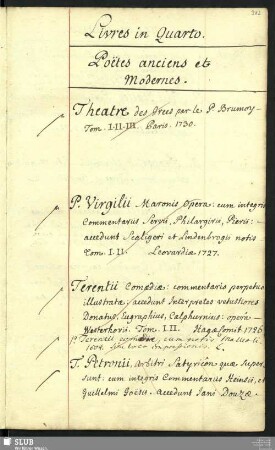 Livres in Quarto.
Poëtes anciens et
Modernes.
Theatre des Grecs par le P Brumoy
Tom. I-II-III Paris. 1730.
P. Virgilii Maronis Opera: cum integris
Commentariis Servii, Philargirii, Pierii:
accedunt Scaligeri et Lindenbrogii notis
Tom. I. II. Leovardiæ 1727.
Terentii Comœdiæ: commentario perpetuo
illustratæ, accedunt Interpretes vetustiores
Donatus, Eugraphius, Calphurnius: opera
Westerhovii. Tom. I. II. Hagæ Comit. 1726
Terentii comœdiæ, cum notis
T. Petronii, Arbitri, Satyricôn quæ super
sunt: cum integris Commentariis Heinsii, et
Guillelmi Goesii. accedunt Jani Douzæ.
SLUB
Wir führen Wissen.